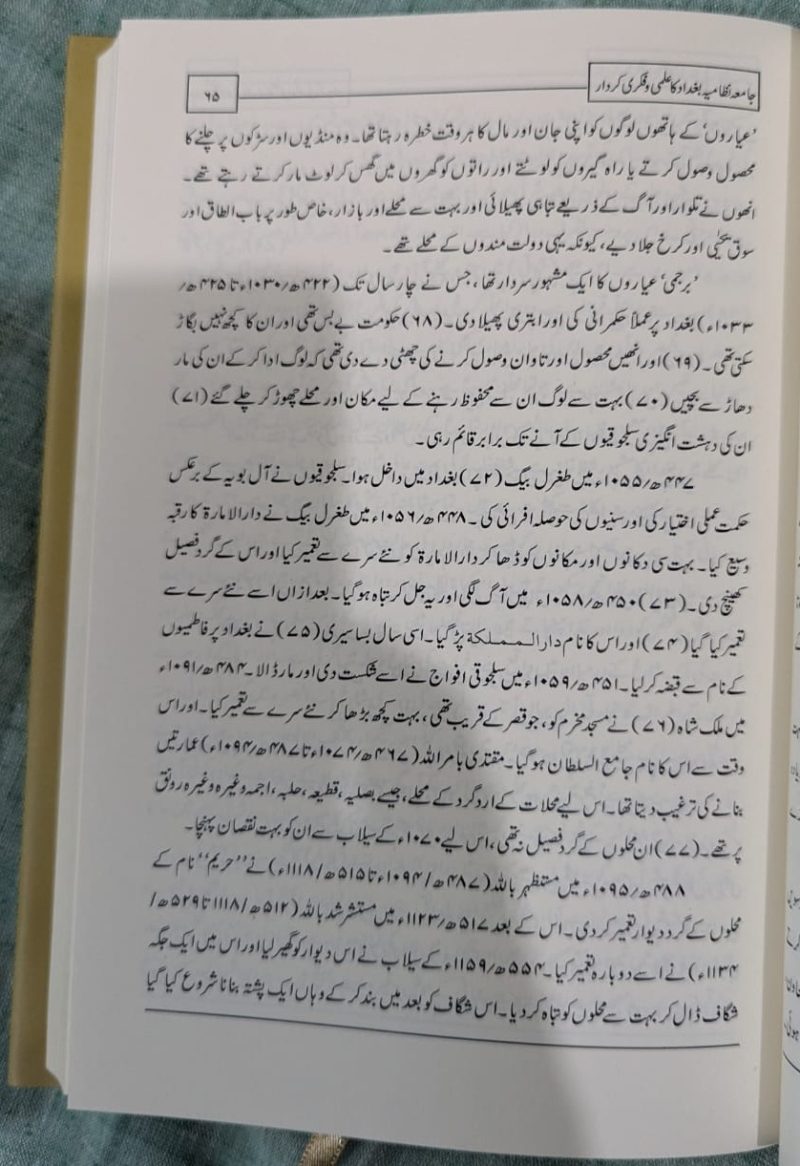 جامعہ نظامیہ بغداد کا علمی و فکری کردار
۶۵
’عیاروں‘ کے ہاتھوں لوگوں کو اپنی جان اور مال کا ہر وقت خطرہ رہتا تھا۔ وہ منڈیوں اور سڑکوں پر چلنے کا
محصول وصول کرتے یا راہ گیروں کو لوٹتے اور راتوں کو گھروں میں گھس کر لوٹ مار کرتے رہتے تھے۔
انھوں نے تلوار اور آگ کے ذریعے تباہی پھیلائی اور بہت سے محلے اور بازار، خاص طور پر باب الطاق اور
سوق یحییٰ اور کرخ جلا دیے، کیونکہ یہی دولت مندوں کے محلے تھے۔
’برجمی‘ عیاروں کا ایک مشہور سردار تھا، جس نے چار سال تک (۴۲۲ھ/۱۰۳۰ء تا ۴۲۵ھ/
۱۰۳۳ء) بغداد پر عملاً حکمرانی کی اور ابتری پھیلا دی۔ (۶۸) حکومت بے بس تھی اور ان کا کچھ نہیں بگاڑ
سکتی تھی۔ (۶۹) اور انھیں محصول اور تاوان وصول کرنے کی چھٹی دے دی تھی کہ لوگ ادا کر کے ان کی مار
دھاڑ سے بچیں (۷۰) بہت سے لوگ ان سے محفوظ رہنے کے لیے مکان اور محلے چھوڑ کر چلے گئے (۷۱)
ان کی دہشت انگیزی سلجوقیوں کے آنے تک برابر قائم رہی۔
۴۴۷ھ/۱۰۵۵ء میں طغرل بیگ (۷۲) بغداد میں داخل ہوا۔ سلجوقیوں نے آل بویہ کے برعکس
حکمت عملی اختیار کی اور سنیوں کی حوصلہ افرائی کی۔ ۴۴۸ھ/۱۰۵۶ء میں طغرل بیگ نے دارالامارۃ کا رقبہ
وسیع کیا۔ بہت سی دکانوں اور مکانوں کو ڈھا کر دارالامارۃ کو نئے سرے سے تعمیر کیا اور اس کے گرد فصیل
کھینچ دی۔ (۷۳) ۴۵۰ھ/۱۰۵۸ء میں آگ لگی اور یہ جل کر تباہ ہو گیا۔ بعد ازاں اسے نئے سرے سے
تعمیر کیا گیا (۷۴) اور اس کا نام دارالمملکة پڑ گیا۔ اسی سال بساسیری (۷۵) نے بغداد پر فاطمیوں
کے نام سے قبضہ کر لیا۔ ۴۵۱ھ/۱۰۵۹ء میں سلجوقی افواج نے اسے شکست دی اور مار ڈالا۔ ۴۸۴ھ/۱۰۹۱ء
میں ملک شاہ (۷۶) نے مسجد مخرم کو، جو قصر کے قریب تھی، بہت کچھ بڑھا کر نئے سرے سے تعمیر کیا۔ اور اس
وقت سے اس کا نام جامع السلطان ہو گیا۔ مقتدی بامر اللہ (۴۶۷ھ/۱۰۷۴ء تا ۴۸۷ھ/۱۰۹۴ء) عمارتیں
بنانے کی ترغیب دیتا تھا۔ اس لیے محلات کے ارد گرد کے محلے، جیسے بصلیہ، قطیعہ، حلبہ، اجمہ وغیرہ وغیرہ رونق
پر تھے۔ (۷۷) ان محلوں کے گرد فصیل نہ تھی، اس لیے ۱۰۷۰ء کے سیلاب سے ان کو بہت نقصان پہنچا۔
۴۸۸ھ/۱۰۹۵ء میں مستظہر باللہ (۴۸۷ھ/۱۰۹۴ء تا ۵۱۵ھ/۱۱۱۸ء) نے ’’حریم‘‘ نام کے
محلوں کے گرد دیوار تعمیر کر دی۔ اس کے بعد ۵۱۷ھ/۱۱۲۳ء میں مستشر شد باللہ (۵۱۲ھ/۱۱۱۸ تا ۵۲۹ھ/
۱۱۳۴ء) نے اسے دوبارہ تعمیر کیا۔ ۵۵۴ھ/۱۱۵۹ء کے سیلاب نے اس دیوار کو گھیر لیا اور اس میں ایک جگہ
شگاف ڈال کر بہت سے محلوں کو تباہ کر دیا۔ اس شگاف کو بعد میں بند کر کے وہاں ایک پشتہ بنانا شروع کیا گیا